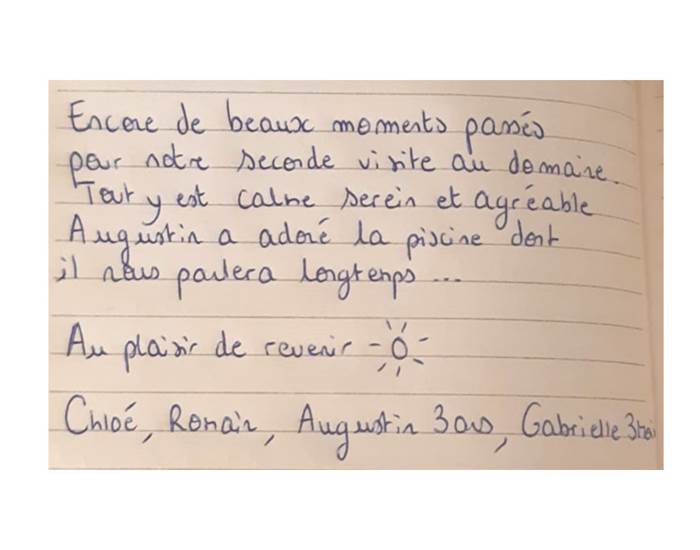 Encore de beaux moments passés
pour notre seconde visite au domaine.
Tout y est calme serein et agréable
Augustin a adoré la piscine dont
il nous parlera longtemps ...
Au plaisir de revenir
Chloé, Romain, Augustin 3 ans, Gabrielle 3 moi